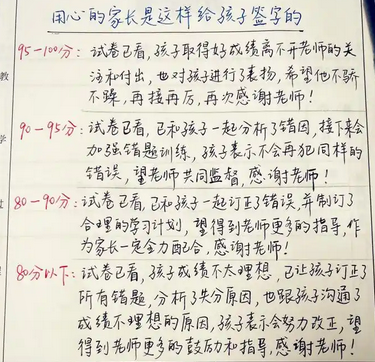 用心的家长是这样给孩子签字的
95-100分：试卷已看，孩子取得好成绩离不开老师的关
注和付出，也对孩子进行了表扬，希望他不骄
不躁，再接再厉，再次感谢老师！
90-95分：试卷已看，已和孩子一起分析了错因，接下来会
加强错题训练，孩子表示不会再犯同样的
错误，望老师共同监督，感谢老师！
80-90分：试卷已看，已和孩子一起订正了错误，并制订了
合理的学习计划，望得到老师更多的指导，作
为家长一定全力配合，感谢老师！
80分以下：试卷已看，孩子成绩不太理想，已让孩子订正了
所有错题，分析了失分原因，也跟孩子沟通了
成绩不理想的原因，孩子表示会努力改正，望
得到老师更多的鼓励和指导，感谢老师！
教
学